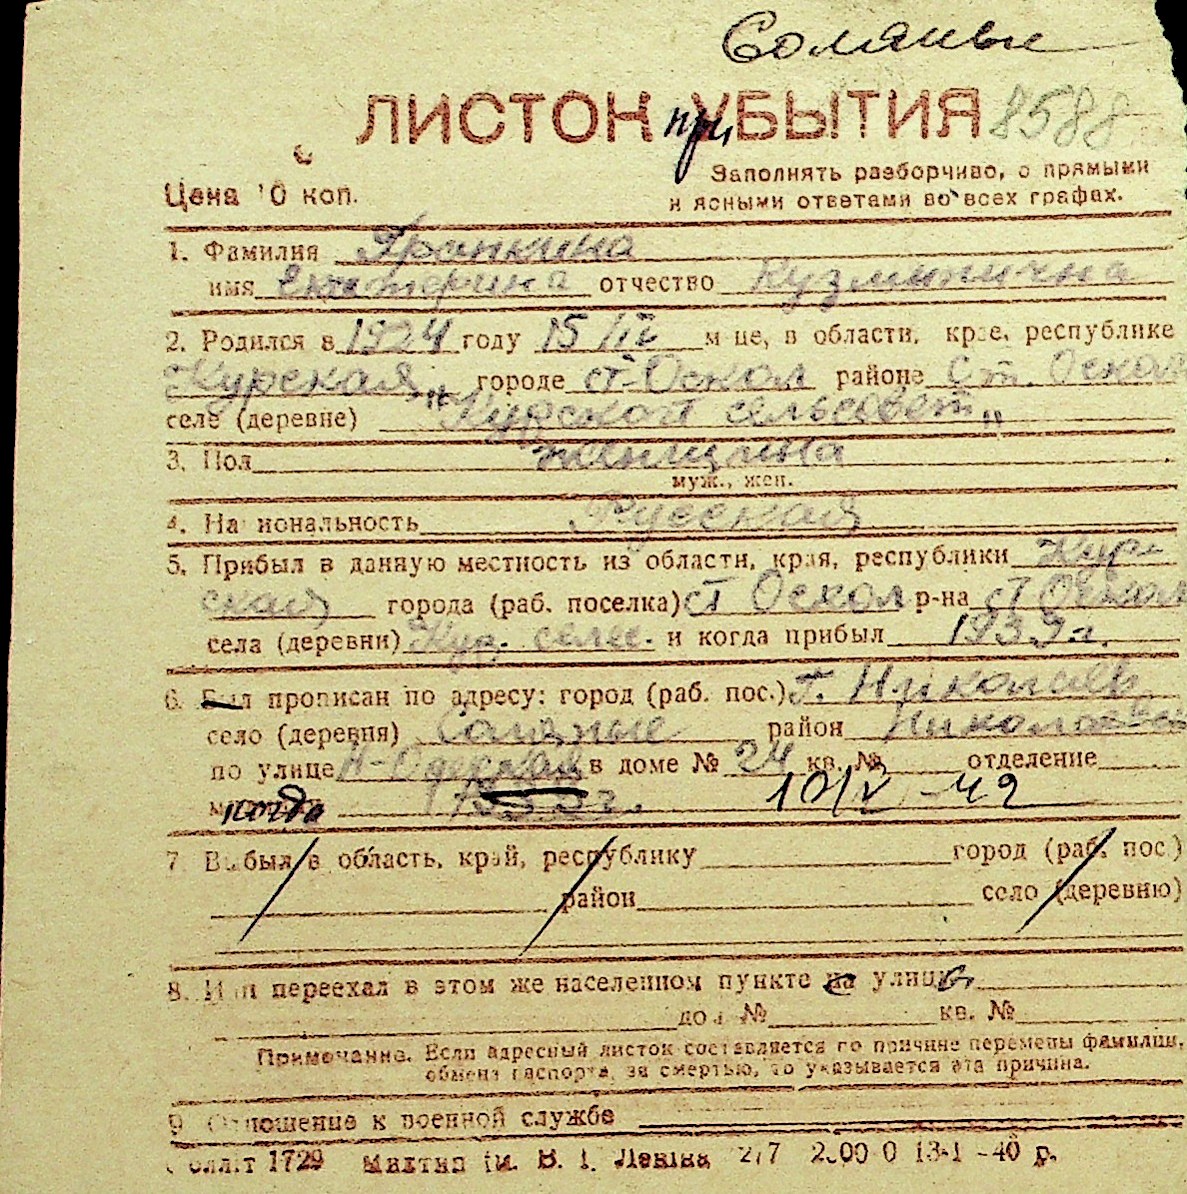 Соляные
ЛИСТОК при УБЫТИЯ 8588
Цена 10 коп.
Заполнять разборчиво, с прямыми
и ясными ответами во всех графах.
1. Фамилия
имя Екатерина отчество Кузьминична
2. Родился в 1924 году 15/IV м-це, в области, крае, республике
Курская городе ст-Оскол районе Ст. Оскол
селе (деревне) "Курской сельсовет"
3. Пол женщина
муж., жен.
4. Национальность Русская
5. Прибыл в данную местность из области, края, республики Кур-
ская города (раб. поселка) ст Оскол р-на ст Оскол
села (деревни) Кур. сельс. и когда прибыл 1939 г.
6. Был прописан по адресу: город (раб. пос.) г. Николаев
село (деревня) Соляные район Николаевск
по улице Н-Одесская в доме № 24 кв. № отделение
когда 10/V-42
7. Выбыл в область, край, республику город (раб. пос.)
район село (деревню)
8. Или переехал в этом же населенном пункте на улицу
дом № кв. №
Примечание. Если адресный листок составляется по причине перемены фамилии,
обмена паспорта, за смертью, то указывается эта причина.
9. Отношение к военной службе
1729 им. В. І. Леніна 13-1-40 р.